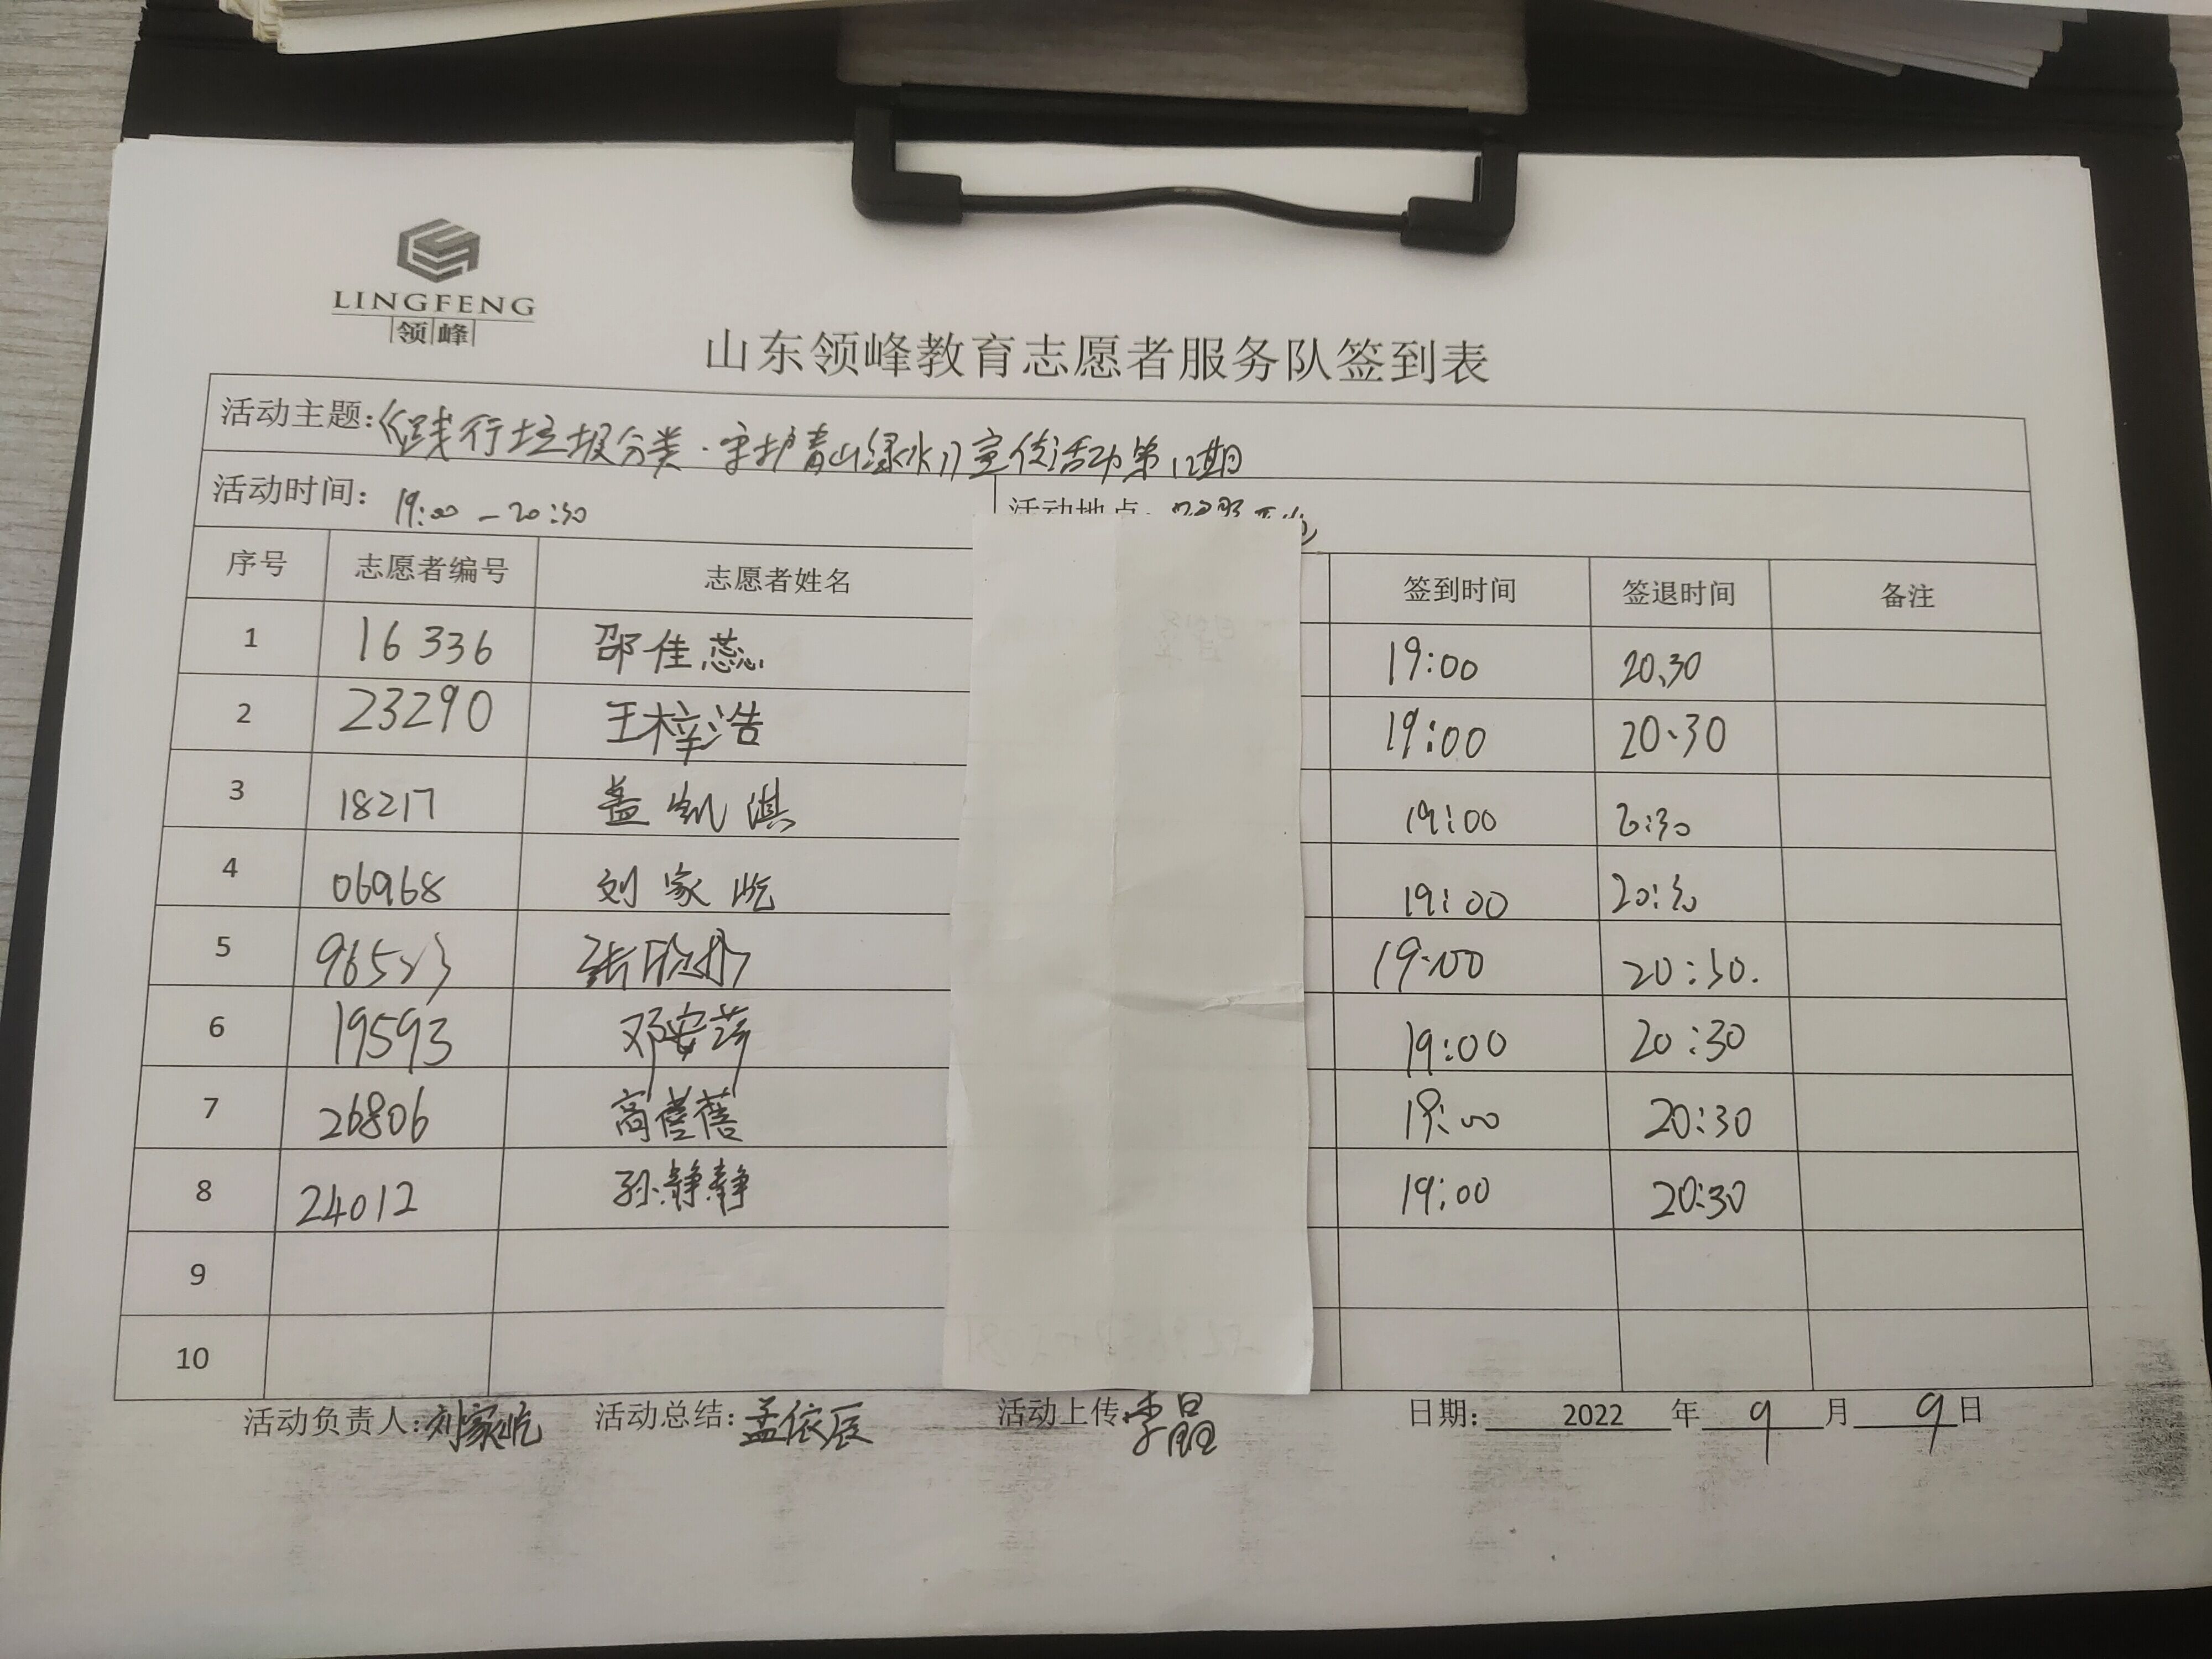 LINGFENG
领峰
山东领峰教育志愿者服务队签到表
活动主题:《践行垃圾分类·守护青山绿水》宣传活动第12期
活动时间: 19:00-20:30 活动地点:
序号 志愿者编号 志愿者姓名 签到时间 签退时间 备注
1 16336 邵佳蕊 19:00 20:30
2 23290 王梓浩 19:00 20:30
3 18217 盖凯淇 19:00 20:30
4 06968 刘家屹 19:00 20:30
5 96523 张欣 19:00 20:30.
6 19593 邓安萍 19:00 20:30
7 26806 高蓓蓓 19:00 20:30
8 24012 孙静静 19:00 20:30
9
10
活动负责人:刘家屹 活动总结:孟依辰 活动上传:李晶 日期: 2022 年 9 月 9 日